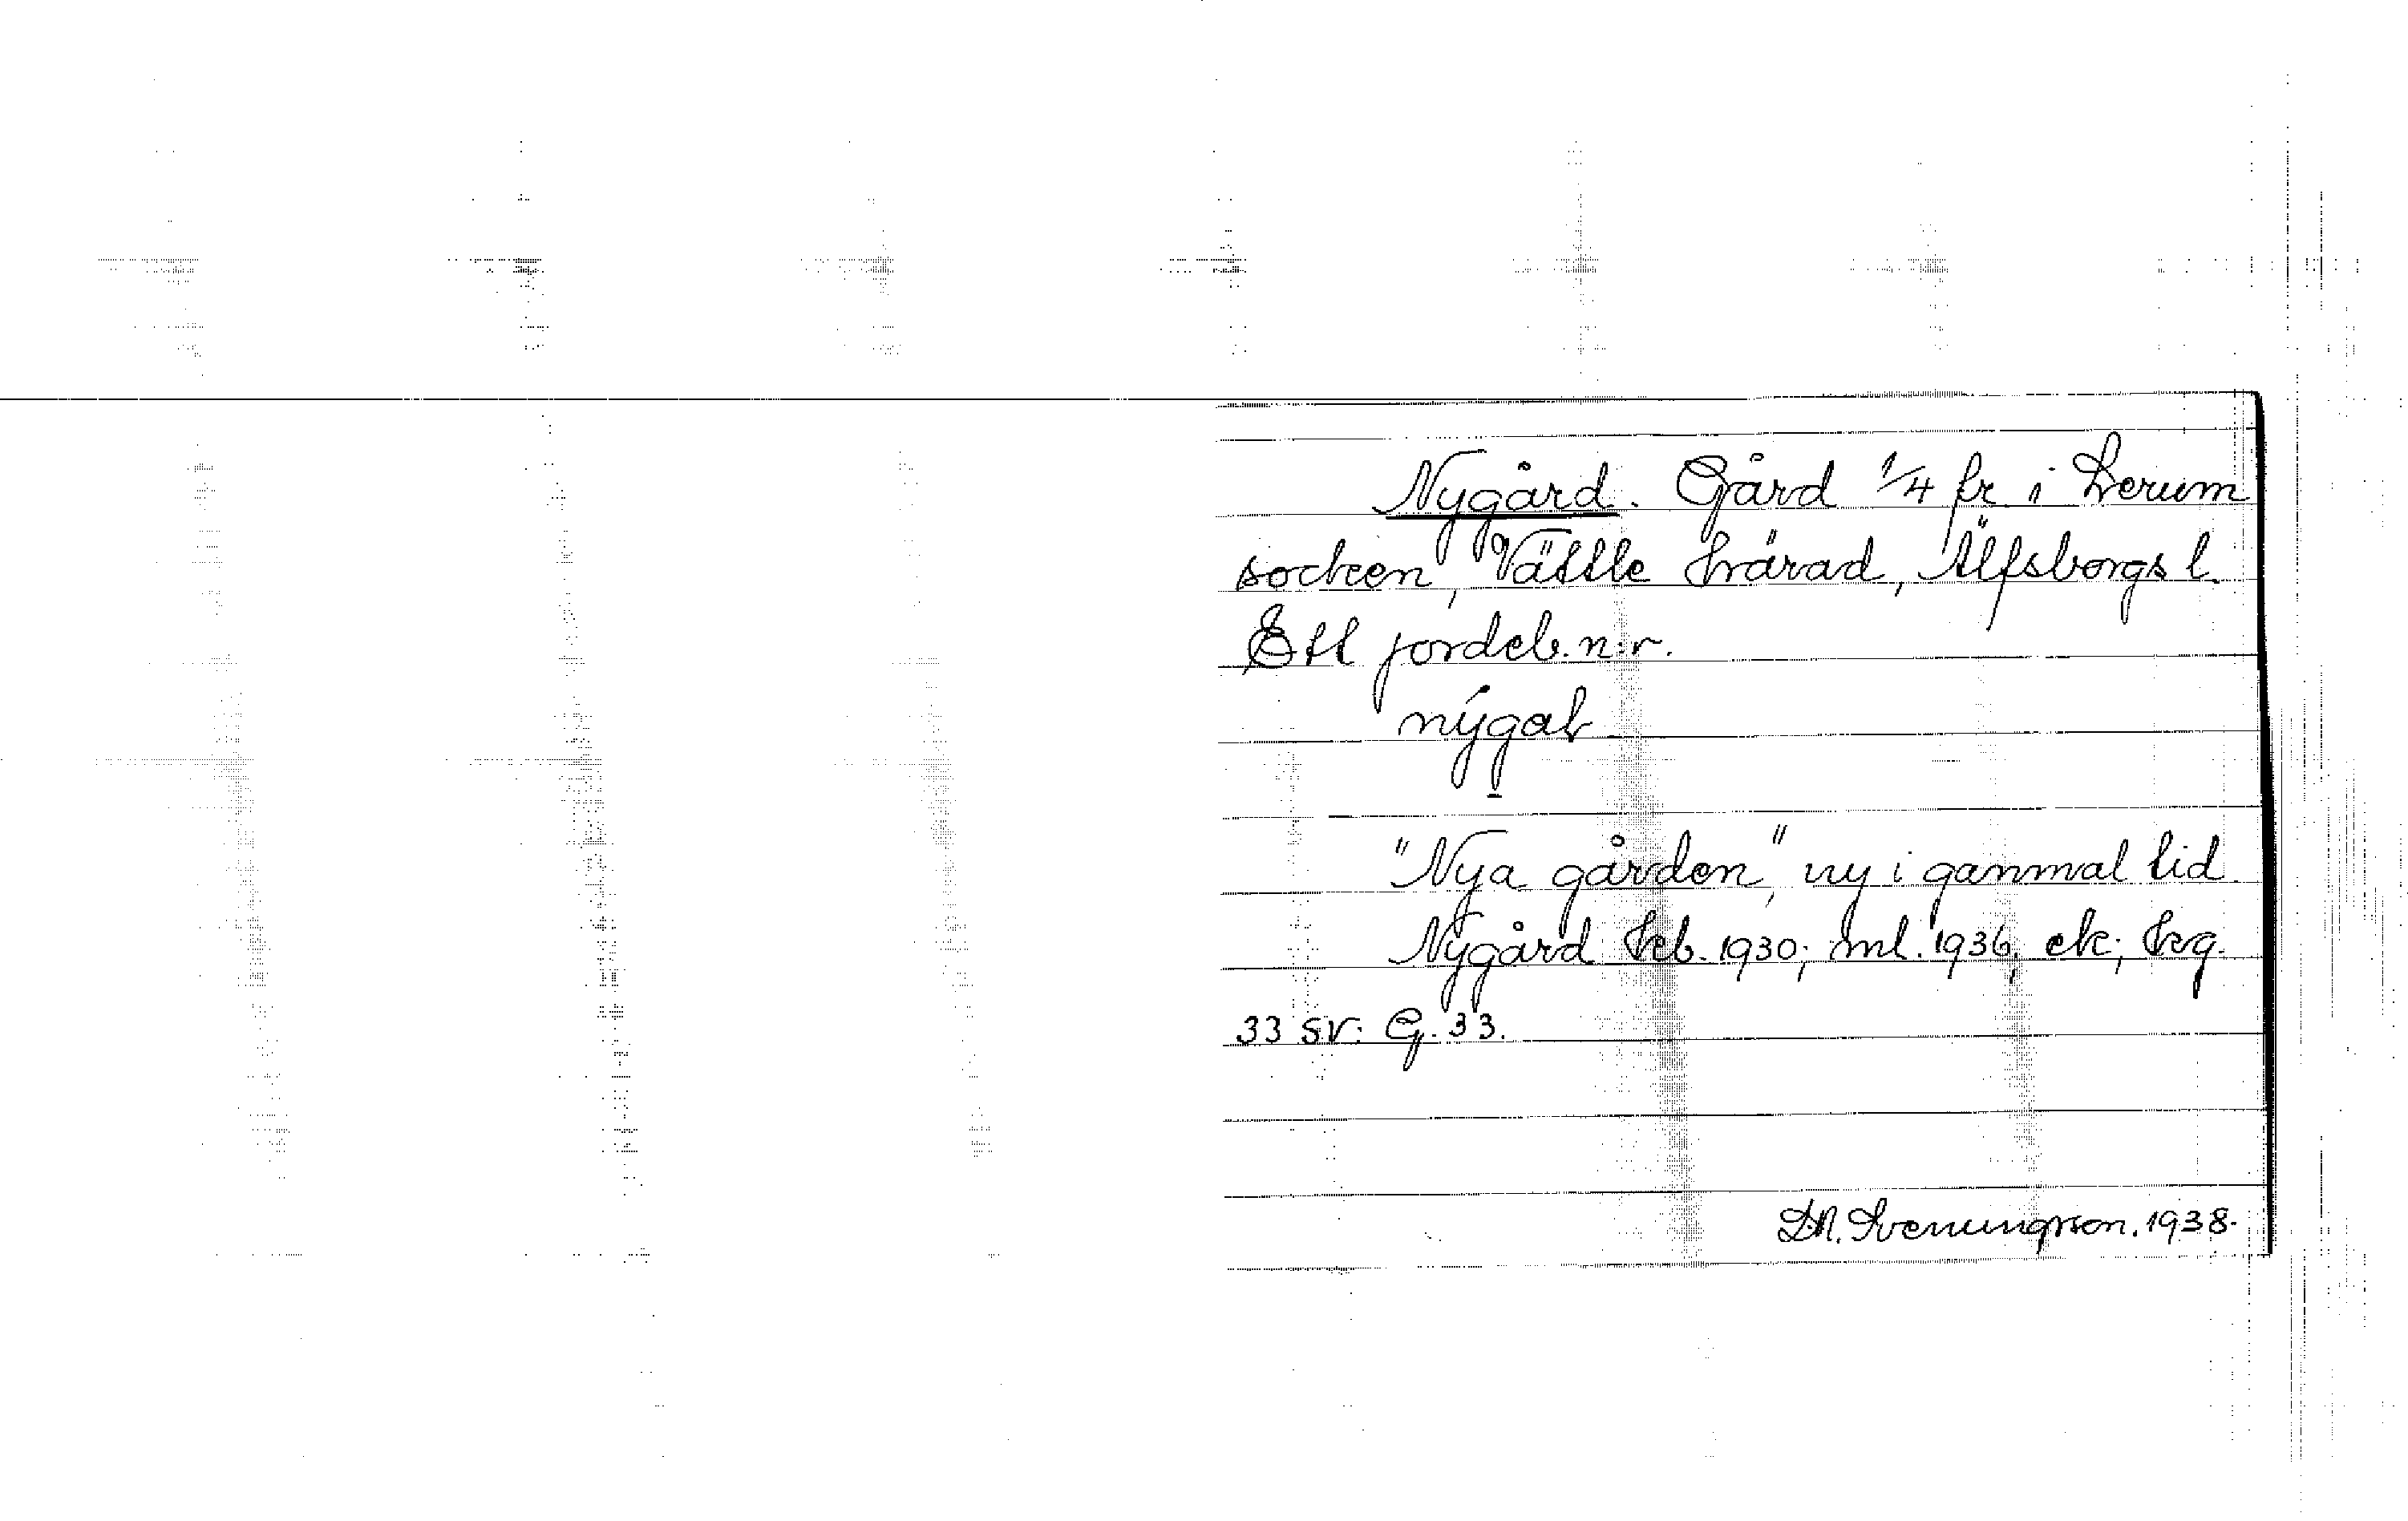 Nygård. Gård 1/4 kr i Lerum
socken, Vättle härad, Älfsborgs l.
Ett jordeb.n:r.
nýgaḷ
"Nya gården", ny i gammal tid
Nygård Jrb. 1930; ml. 1936, ek; hrg.
33 SV: G. 33.
Sveningson. 1938.